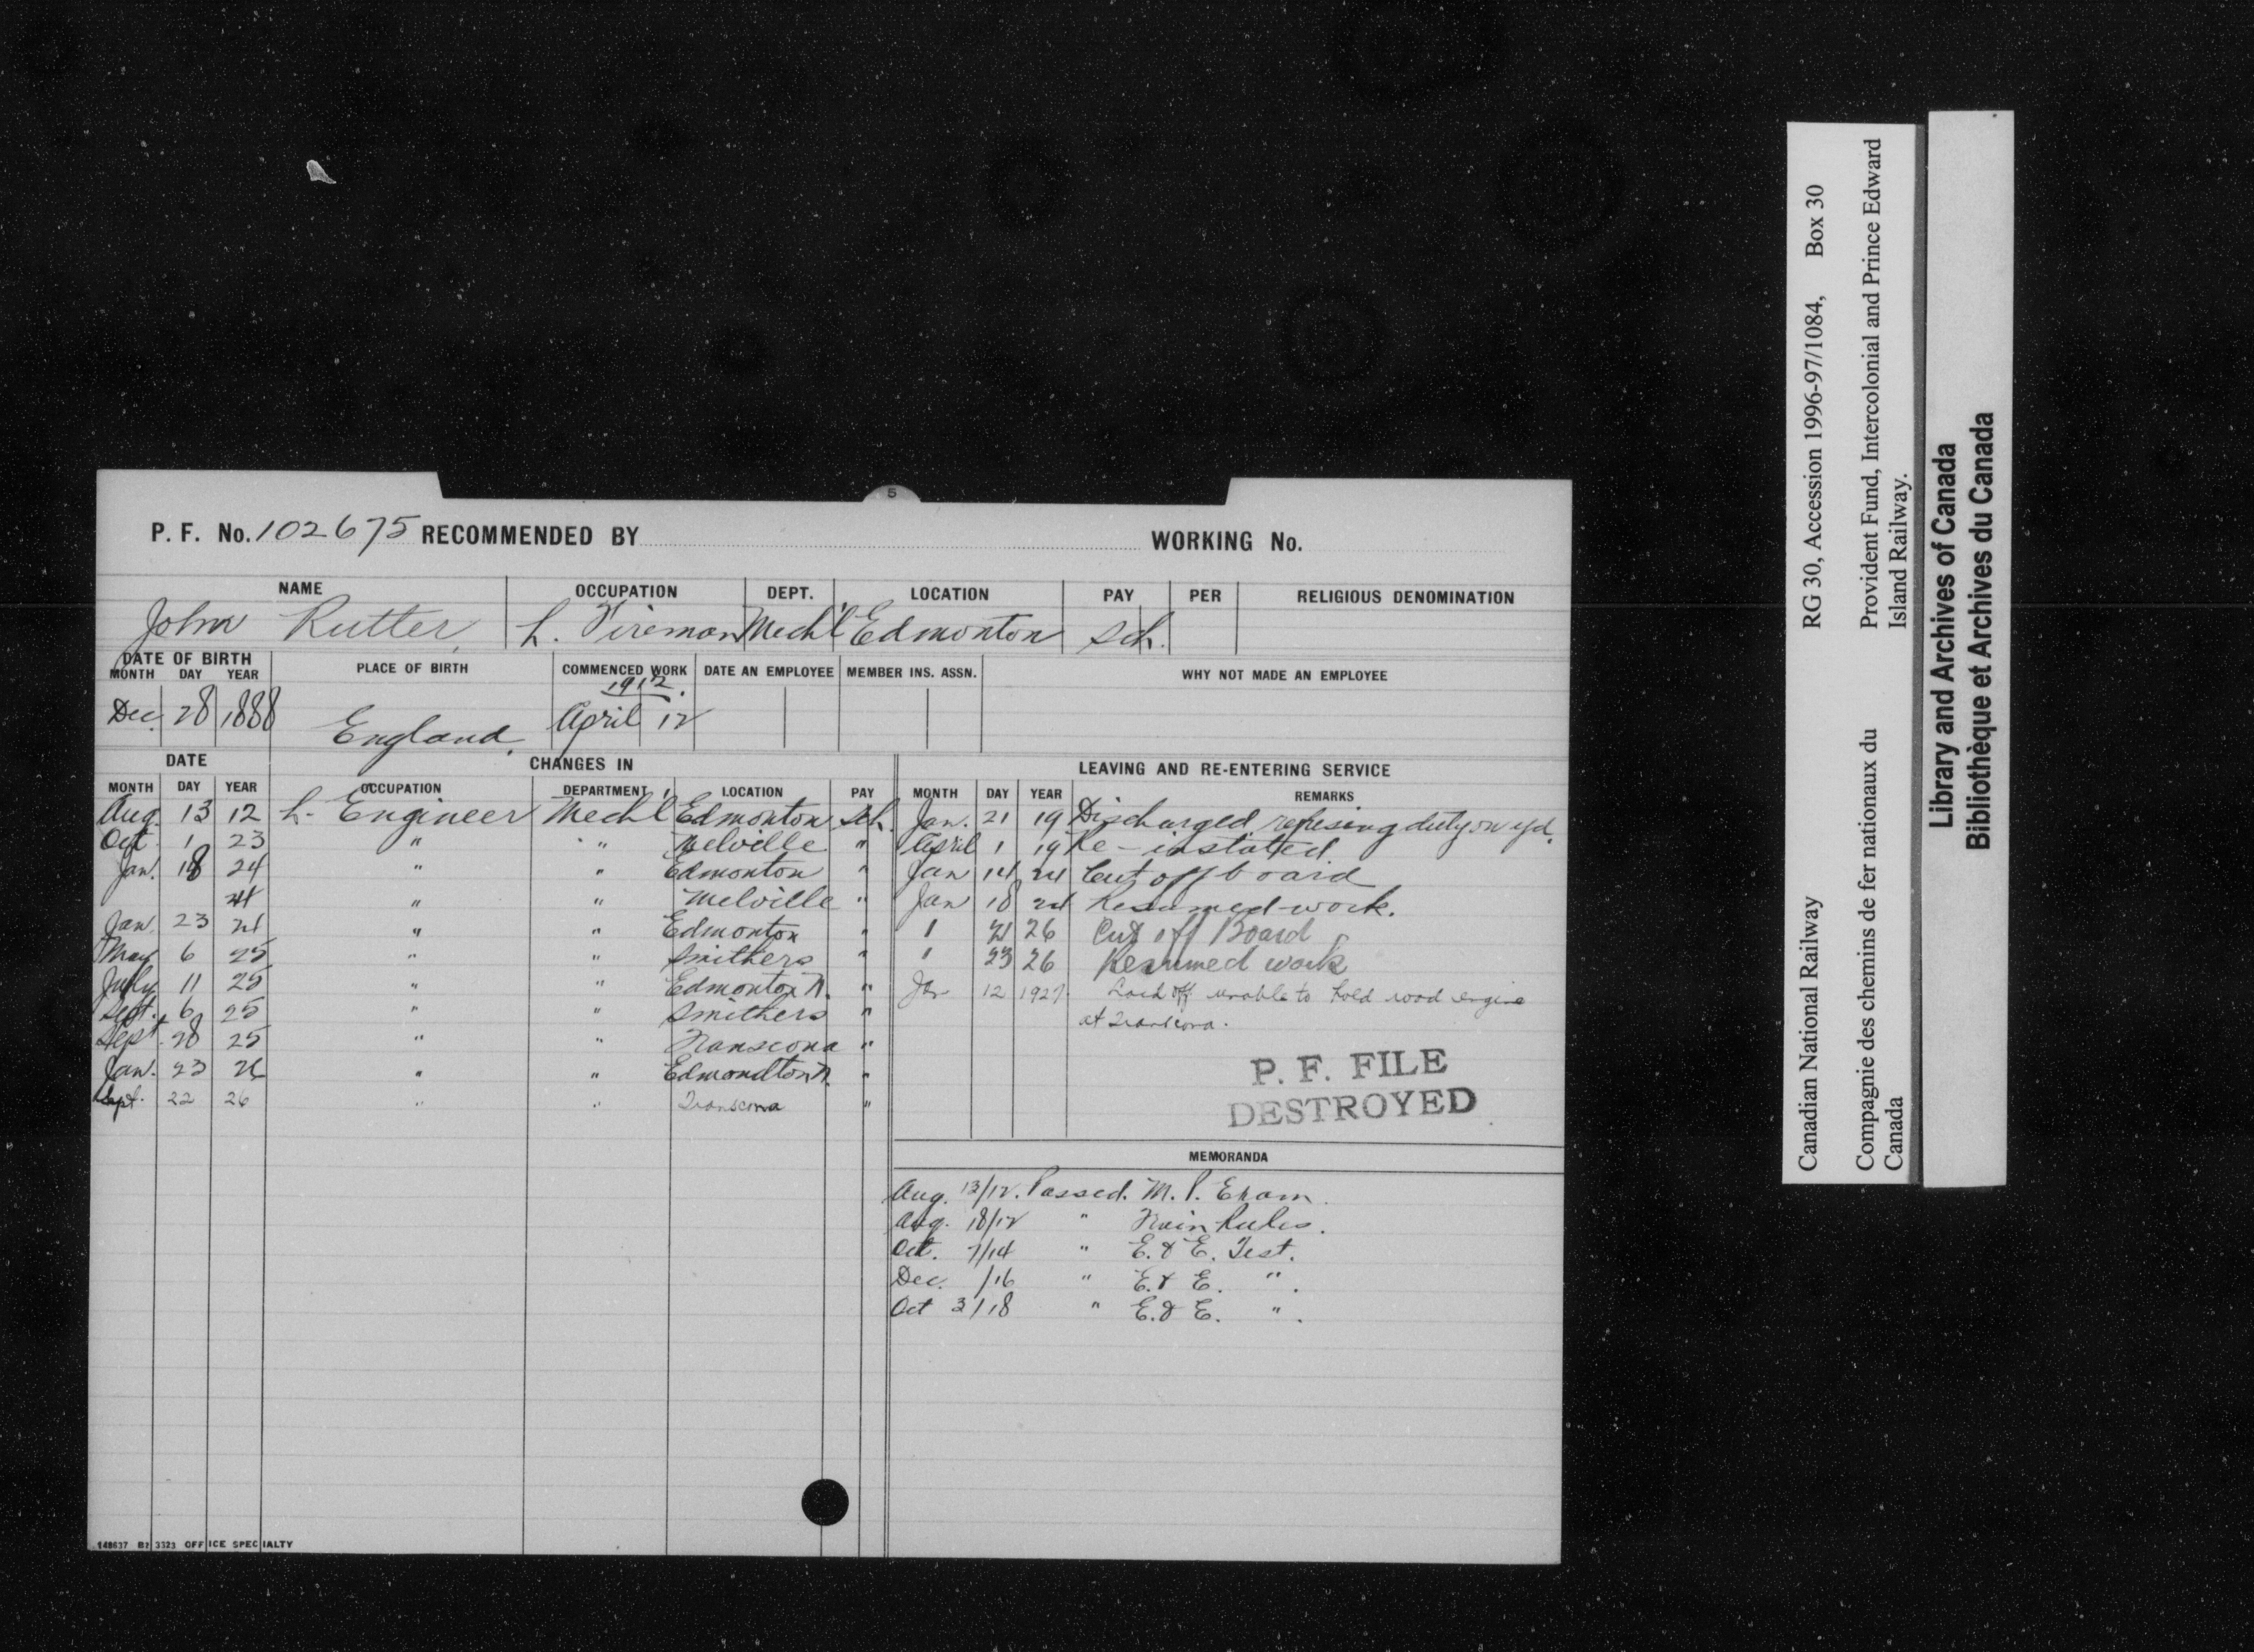 5
P. F. No. 102675 RECOMMENDED BY WORKING No.
NAME OCCUPATION DEPT. LOCATION PAY PER RELIGIOUS DENOMINATION
John Rutter, L. Fireman Mech'l Edmonton Sch.
DATE OF BIRTH PLACE OF BIRTH COMMENCED WORK DATE AN EMPLOYEE MEMBER INS. ASSN. WHY NOT MADE AN EMPLOYEE
MONTH DAY YEAR
1912.
Dec. 28 1888 England. April 12
DATE CHANGES IN LEAVING AND RE-ENTERING SERVICE
MONTH DAY YEAR OCCUPATION DEPARTMENT LOCATION PAY MONTH DAY YEAR REMARKS
Aug. 13 12 L. Engineer Mech'l Edmonton Sch. Jan. 21 19 Discharged refusing duty on yd.
Oct. 1 23 " " Melville " April 1 19 Re-instated
Jan. 18 24 " " Edmonton " Jan 14 24 Cut off board
24 " " Melville " Jan 18 24 Resumed work.
Jan. 23 24 " " Edmonton " " 21 26 Cut off Board
May 6 25 " " Smithers " " 23 26 Resumed work
July 11 25 " " Edmonton N. " Jan 12 1927. Laid off unable to hold road engine
Sept. 6 25 " " Smithers " at Transcona.
Sept. 28 25 " " Transcona "
Jan. 23 26 " " Edmondton N. "
Sept. 22 26 " " Transcona "
P. F. FILE
DESTROYED
MEMORANDA
Aug. 13/12. Passed. M. P. Exam.
Aug. 18/12 " Train Rules.
Oct. 7/14 " E. & E. Test.
Dec. /16 " E. & E. " .
Oct 3/18 " E. & E. " .
148637 B2 3323 OFFICE SPECIALTY
Canadian National Railway RG 30, Accession 1996-97/1084, Box 30
Compagnie des chemins de fer nationaux du Provident Fund, Intercolonial and Prince Edward
Canada Island Railway.
Library and Archives of Canada
Bibliothèque et Archives du Canada